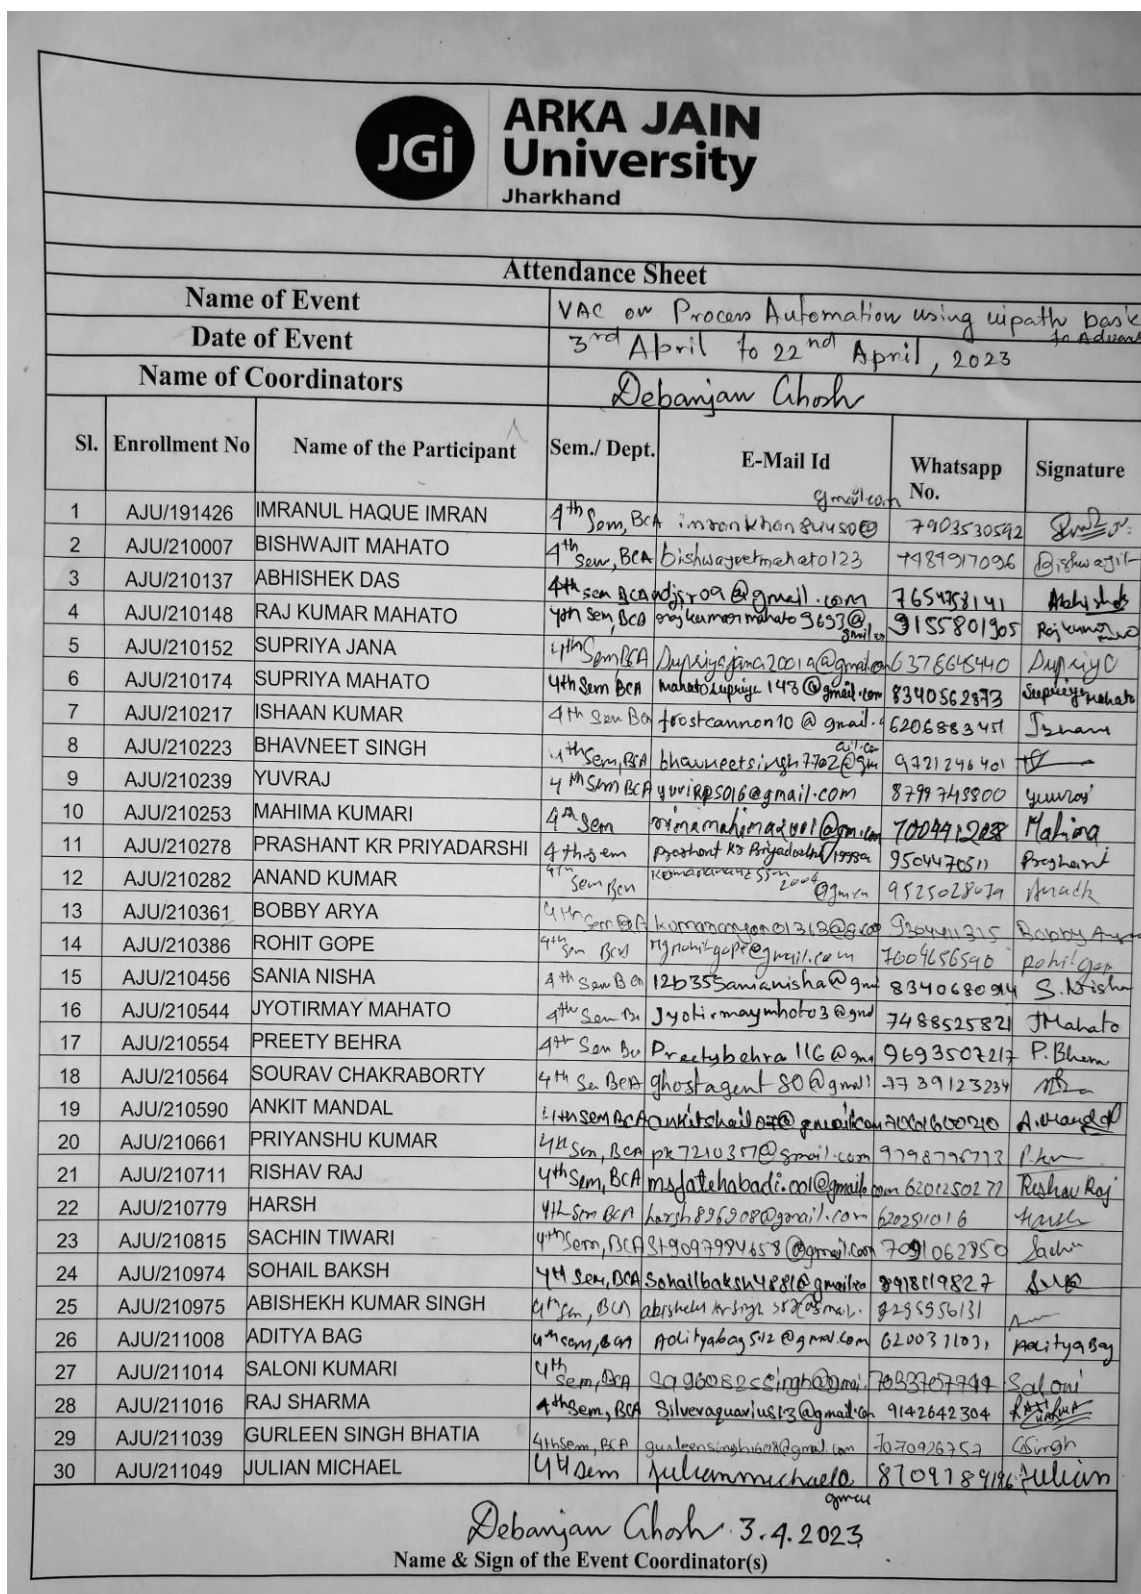 JGi
ARKA JAIN
University
Jharkhand
Attendance Sheet
Name of Event VAC on Process Automation using uipath basic
to Advan
Date of Event 3rd April to 22nd April, 2023
Name of Coordinators Debanjan Ghosh
Sl. Enrollment No Name of the Participant Sem./ Dept. E-Mail Id Whatsapp No. Signature
1 AJU/191426 IMRANUL HAQUE IMRAN 4th Sem, BCA gmail.com 7903530592
2 AJU/210007 BISHWAJIT MAHATO 4th Sem, BCA bishwajeetmahato123 7484917096 Bishwajit
3 AJU/210137 ABHISHEK DAS 4th sem BCA 7654758141 Abhishek
4 AJU/210148 RAJ KUMAR MAHATO 4th Sem, BCA 9155801905
5 AJU/210152 SUPRIYA JANA 4th Sem BCA 6376645440
6 AJU/210174 SUPRIYA MAHATO 4th Sem BCA mahatosupriya143@gmail.com 8340562873 Supriya Mahato
7 AJU/210217 ISHAAN KUMAR 4th Sem frostcannon10@gmail. 6206883451
8 AJU/210223 BHAVNEET SINGH 4th Sem, BCA bhavneetsingh7702@gm ail.com 9721246401
9 AJU/210239 YUVRAJ 4th Sem BCA yuviRPS016@gmail.com 8799745800 yuvraj
10 AJU/210253 MAHIMA KUMARI 4th Sem Mahima
11 AJU/210278 PRASHANT KR PRIYADARSHI 4th sem 9504470511 Prashant
12 AJU/210282 ANAND KUMAR 4th Sem
13 AJU/210361 BOBBY ARYA 4th Sem BCA Bobby
14 AJU/210386 ROHIT GOPE 4th Sem 7004656590 Rohit
15 AJU/210456 SANIA NISHA 4th Sem 12b35Sanianisha@gm S. Nisha
16 AJU/210544 JYOTIRMAY MAHATO 4th Sem Jyotirmaymhoto3@ 7488525821 JMahato
17 AJU/210554 PREETY BEHRA 4th Sem Preetybehra116@gm 9693507217
18 AJU/210564 SOURAV CHAKRABORTY 4th BCA ghostagent80@gmail 7739123234
19 AJU/210590 ANKIT MANDAL 4th Sem BCA ankitshail07@gmail.com
20 AJU/210661 PRIYANSHU KUMAR 4th Sem, BCA pk7210357@gmail.com 9798796773
21 AJU/210711 RISHAV RAJ 4th Sem, BCA msfatehabadi.001@gmail.com 6201250277 Rishav Raj
22 AJU/210779 HARSH 4th Sem BCA harsh896908@gmail.com Harsh
23 AJU/210815 SACHIN TIWARI 4th Sem, BCA St9097984658@gmail.com 7091062850
24 AJU/210974 SOHAIL BAKSH 4th Sem, BCA 8918119827
25 AJU/210975 ABISHEKH KUMAR SINGH 4th Sem, BCA
26 AJU/211008 ADITYA BAG 4th sem, BCA Adityabag512@gmail.com Aditya Bag
27 AJU/211014 SALONI KUMARI 4th Sem, BCA Saloni
28 AJU/211016 RAJ SHARMA 4th Sem, BCA Silveraquarius13@gmail.com 9142642304
29 AJU/211039 GURLEEN SINGH BHATIA 4th Sem, BCA gurleensingh1608@gmail.com 7070926757 GSingh
30 AJU/211049 JULIAN MICHAEL 4th Sem Julian
Debanjan Ghosh 3.4.2023
Name & Sign of the Event Coordinator(s)